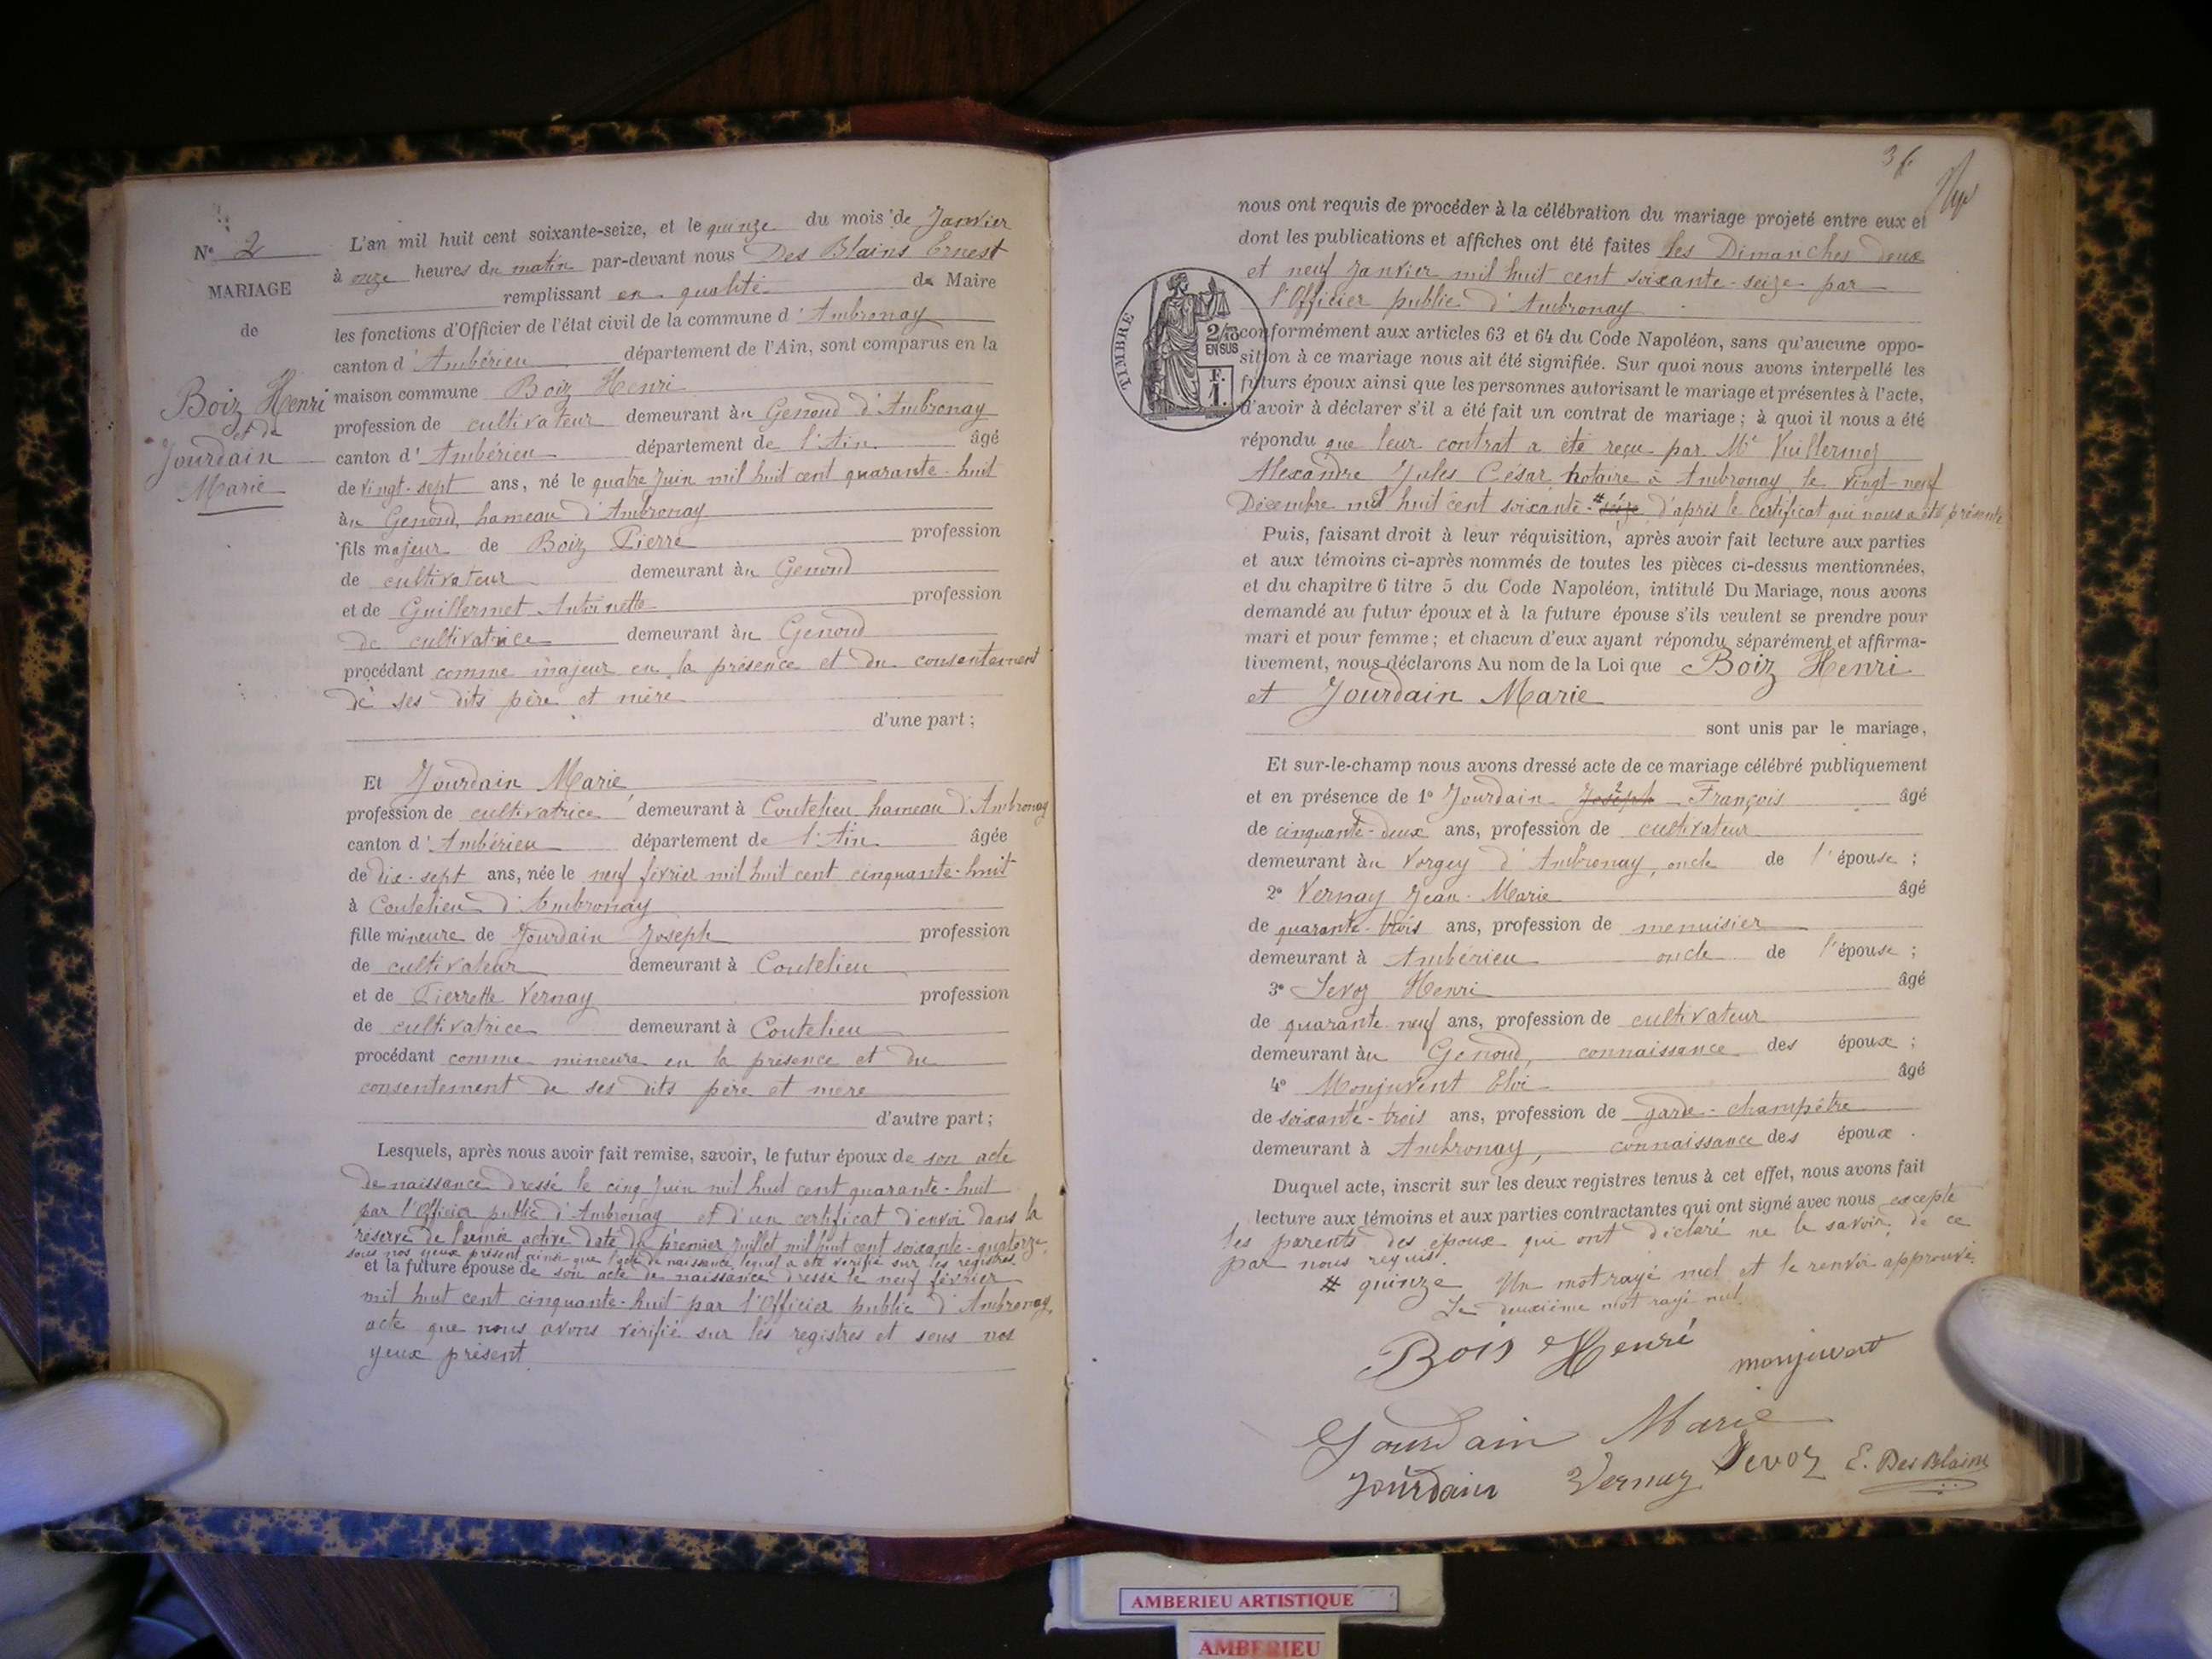 N° 2
MARIAGE
de
Boiz Henri
et de
Jourdain
Marie
L'an mil huit cent soixante-seize, et le quinze du mois de Janvier
à onze heures du matin par-devant nous Des Blains Ernest
remplissant en qualité de Maire
les fonctions d'Officier de l'état civil de la commune d'Ambronay
canton d'Ambérieu département de l'Ain, sont comparus en la
maison commune Boiz Henri
profession de cultivateur demeurant au Genoud d'Ambronay
canton d'Ambérieu département de l'Ain âgé
de vingt-sept ans, né le quatre Juin mil huit cent quarante-huit
au Genoud, hameau d'Ambronay
fils majeur de Boiz Pierre profession
de cultivateur demeurant au Genoud
et de Guillermet Antoinette profession
de cultivatrice demeurant au Genoud
procédant comme majeur en la présence et du consentement
de ses dits père et mère
d'une part ;
Et Jourdain Marie
profession de cultivatrice demeurant à Coutelieu hameau d'Ambronay
canton d'Ambérieu département de l'Ain âgée
de dix-sept ans, née le neuf février mil huit cent cinquante-huit
à Coutelieu d'Ambronay
fille mineure de Jourdain Joseph profession
de cultivateur demeurant à Coutelieu
et de Pierrette Vernay profession
de cultivatrice demeurant à Coutelieu
procédant comme mineure en la présence et du
consentement de ses dits père et mère
d'autre part ;
Lesquels, après nous avoir fait remise, savoir, le futur époux de son acte
de naissance dressé le cinq Juin mil huit cent quarante-huit
par l'Officier public d'Ambronay et d'un certificat d'envoi dans la
réserve de l'armée active daté du premier Juillet mil huit cent soixante-quatorze
sous nos yeux présent ainsi que l'acte de naissance lequel a été vérifié sur les registres.
et la future épouse de son acte de naissance dressé le neuf février
mil huit cent cinquante-huit par l'Officier public d'Ambronay,
acte que nous avons vérifié sur les registres et sous nos
yeux présent
36
nous ont requis de procéder à la célébration du mariage projeté entre eux et
dont les publications et affiches ont été faites les Dimanches deux
et neuf Janvier mil huit cent soixante-seize par
l'Officier public d'Ambronay
TIMBRE
2/10
EN SUS
F.
1.
conformément aux articles 63 et 64 du Code Napoléon, sans qu'aucune oppo-
sition à ce mariage nous ait été signifiée. Sur quoi nous avons interpellé les
futurs époux ainsi que les personnes autorisant le mariage et présentes à l'acte,
d'avoir à déclarer s'il a été fait un contrat de mariage ; à quoi il nous a été
répondu que leur contrat a été reçu par Me Vuillermoz
Alexandre Jules César notaire à Ambronay le vingt-neuf
Décembre mil huit cent soixante-# seize d'après le certificat qui nous a été présenté
Puis, faisant droit à leur réquisition, après avoir fait lecture aux parties
et aux témoins ci-après nommés de toutes les pièces ci-dessus mentionnées,
et du chapitre 6 titre 5 du Code Napoléon, intitulé Du Mariage, nous avons
demandé au futur époux et à la future épouse s'ils veulent se prendre pour
mari et pour femme ; et chacun d'eux ayant répondu séparément et affirma-
tivement, nous déclarons Au nom de la Loi que Boiz Henri
et Jourdain Marie
sont unis par le mariage,
Et sur-le-champ nous avons dressé acte de ce mariage célébré publiquement
et en présence de 1° Jourdain Joseph 2 François âgé
de cinquante-deux ans, profession de cultivateur
demeurant au Vorgey d'Ambronay, oncle de l'épouse ;
2° Vernay Jean-Marie âgé
de quarante-trois ans, profession de menuisier
demeurant à Ambérieu oncle de l'épouse ;
3° Jevoz Henri âgé
de quarante-neuf ans, profession de cultivateur
demeurant au Genoud, connaissance des époux ;
4° Monjuvent Eloi âgé
de soixante-trois ans, profession de garde-champêtre
demeurant à Ambronay, connaissance des époux.
Duquel acte, inscrit sur les deux registres tenus à cet effet, nous avons fait
lecture aux témoins et aux parties contractantes qui ont signé avec nous excepté
les parents des époux qui ont déclaré ne le savoir, de ce
par nous requis.
# quinze Un mot rayé nul et le renvoi approuvé.
Le deuxième mot rayé nul.
Bois Henri
monjuvent
Jourdain Marie
Jourdain Vernay Jevoz E. Des Blains
AMBERIEU ARTISTIQUE
AMBERIEU